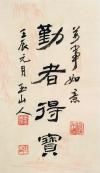 萬事如意
勤者得寶
壬辰元月玉山人